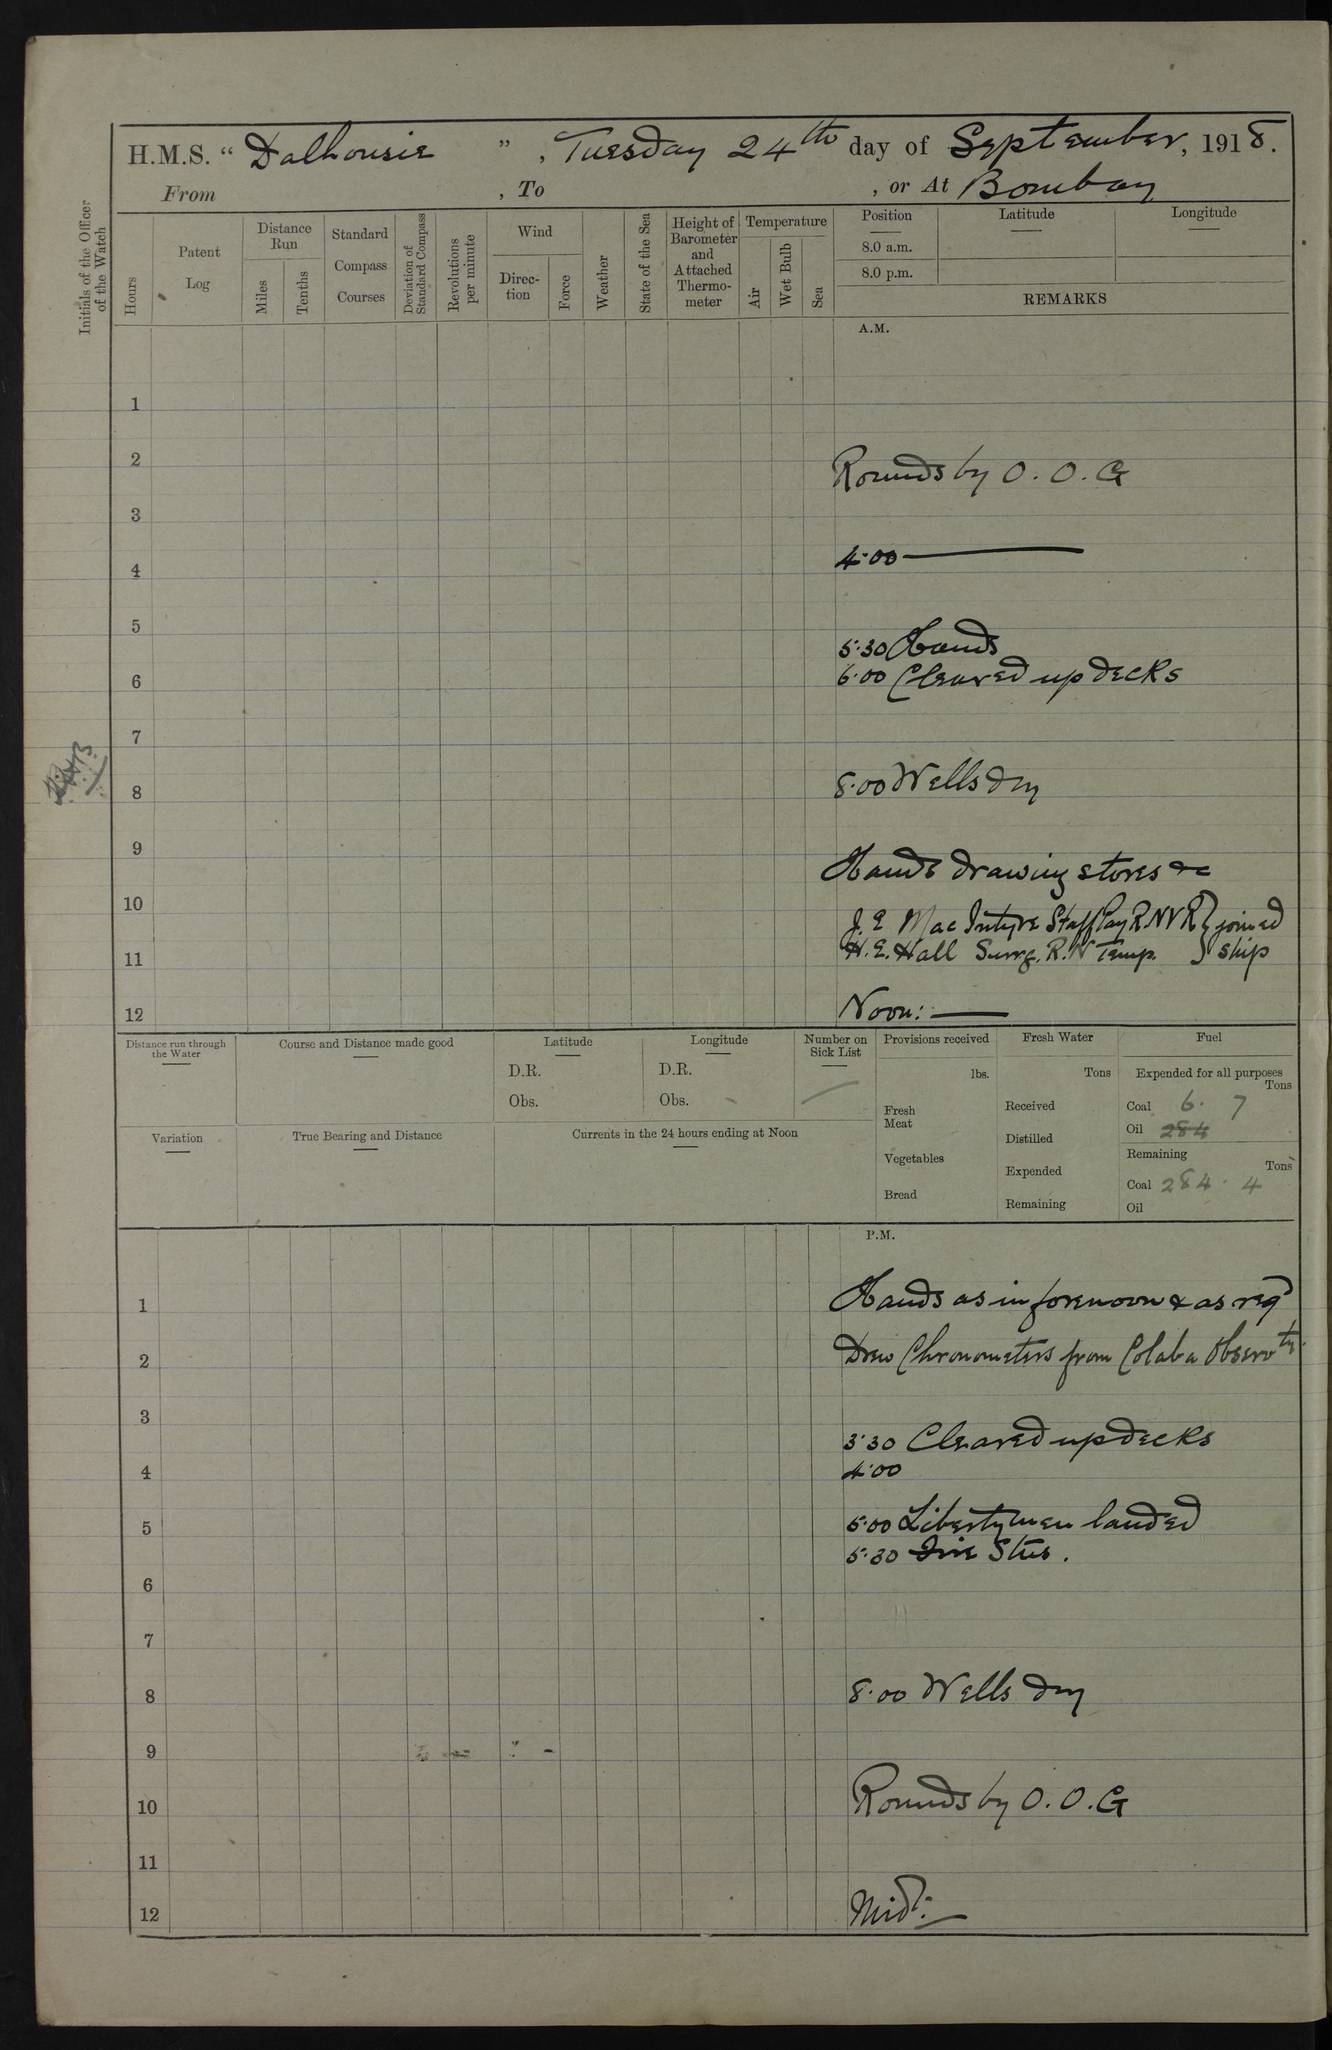 H.M.S. “ Dalhousie ” , Tuesday 24th day of September, 1918.
From , To , or At Bombay
Initials of the Officer
of the Watch
Hours
Patent
Log
Distance
Run
Miles
Tenths
Standard
Compass
Courses
Deviation of
Standard Compass
Revolutions
per minute
Wind
Direc-
tion
Force
Weather
State of the Sea
Height of
Barometer
and
Attached
Thermo-
meter
Temperature
Air
Wet Bulb
Sea
Position Latitude Longitude
8.0 a.m.
8.0 p.m.
REMARKS
A.M.
1
2
Rounds by O. O. G
3
4·00 —
4
5
5·30 Hands
6·00 Cleared up decks
6
7
8·00 Wells dry
8
9
Hands drawing stores &c
10
J. E MacIntyre Staff Pay R.N.V.R } joined
H. E. Hall Surg. R.N Temp. } ship
11
Noon: —
12
Distance run through
the Water
Course and Distance made good
Latitude
D.R.
Obs.
Longitude
D.R.
Obs.
Number on
Sick List
Provisions received
lbs.
Fresh
Meat
Vegetables
Bread
Fresh Water
Tons
Received
Distilled
Expended
Remaining
Fuel
Expended for all purposes
Tons
Coal 6· 7
Oil 284
Remaining
Tons
Coal 284 · 4
Oil
Variation
True Bearing and Distance
Currents in the 24 hours ending at Noon
P.M.
1
Hands as in forenoon & as reqd
2
Drew Chronometers from Colaba Observty.
3
3·30 Cleared up decks
4·00
4
5·00 Liberty men landed
5
5·30 Fire Stns.
6
7
8·00 Wells dry
8
9
Rounds by O. O. G
10
11
Midt: —
12